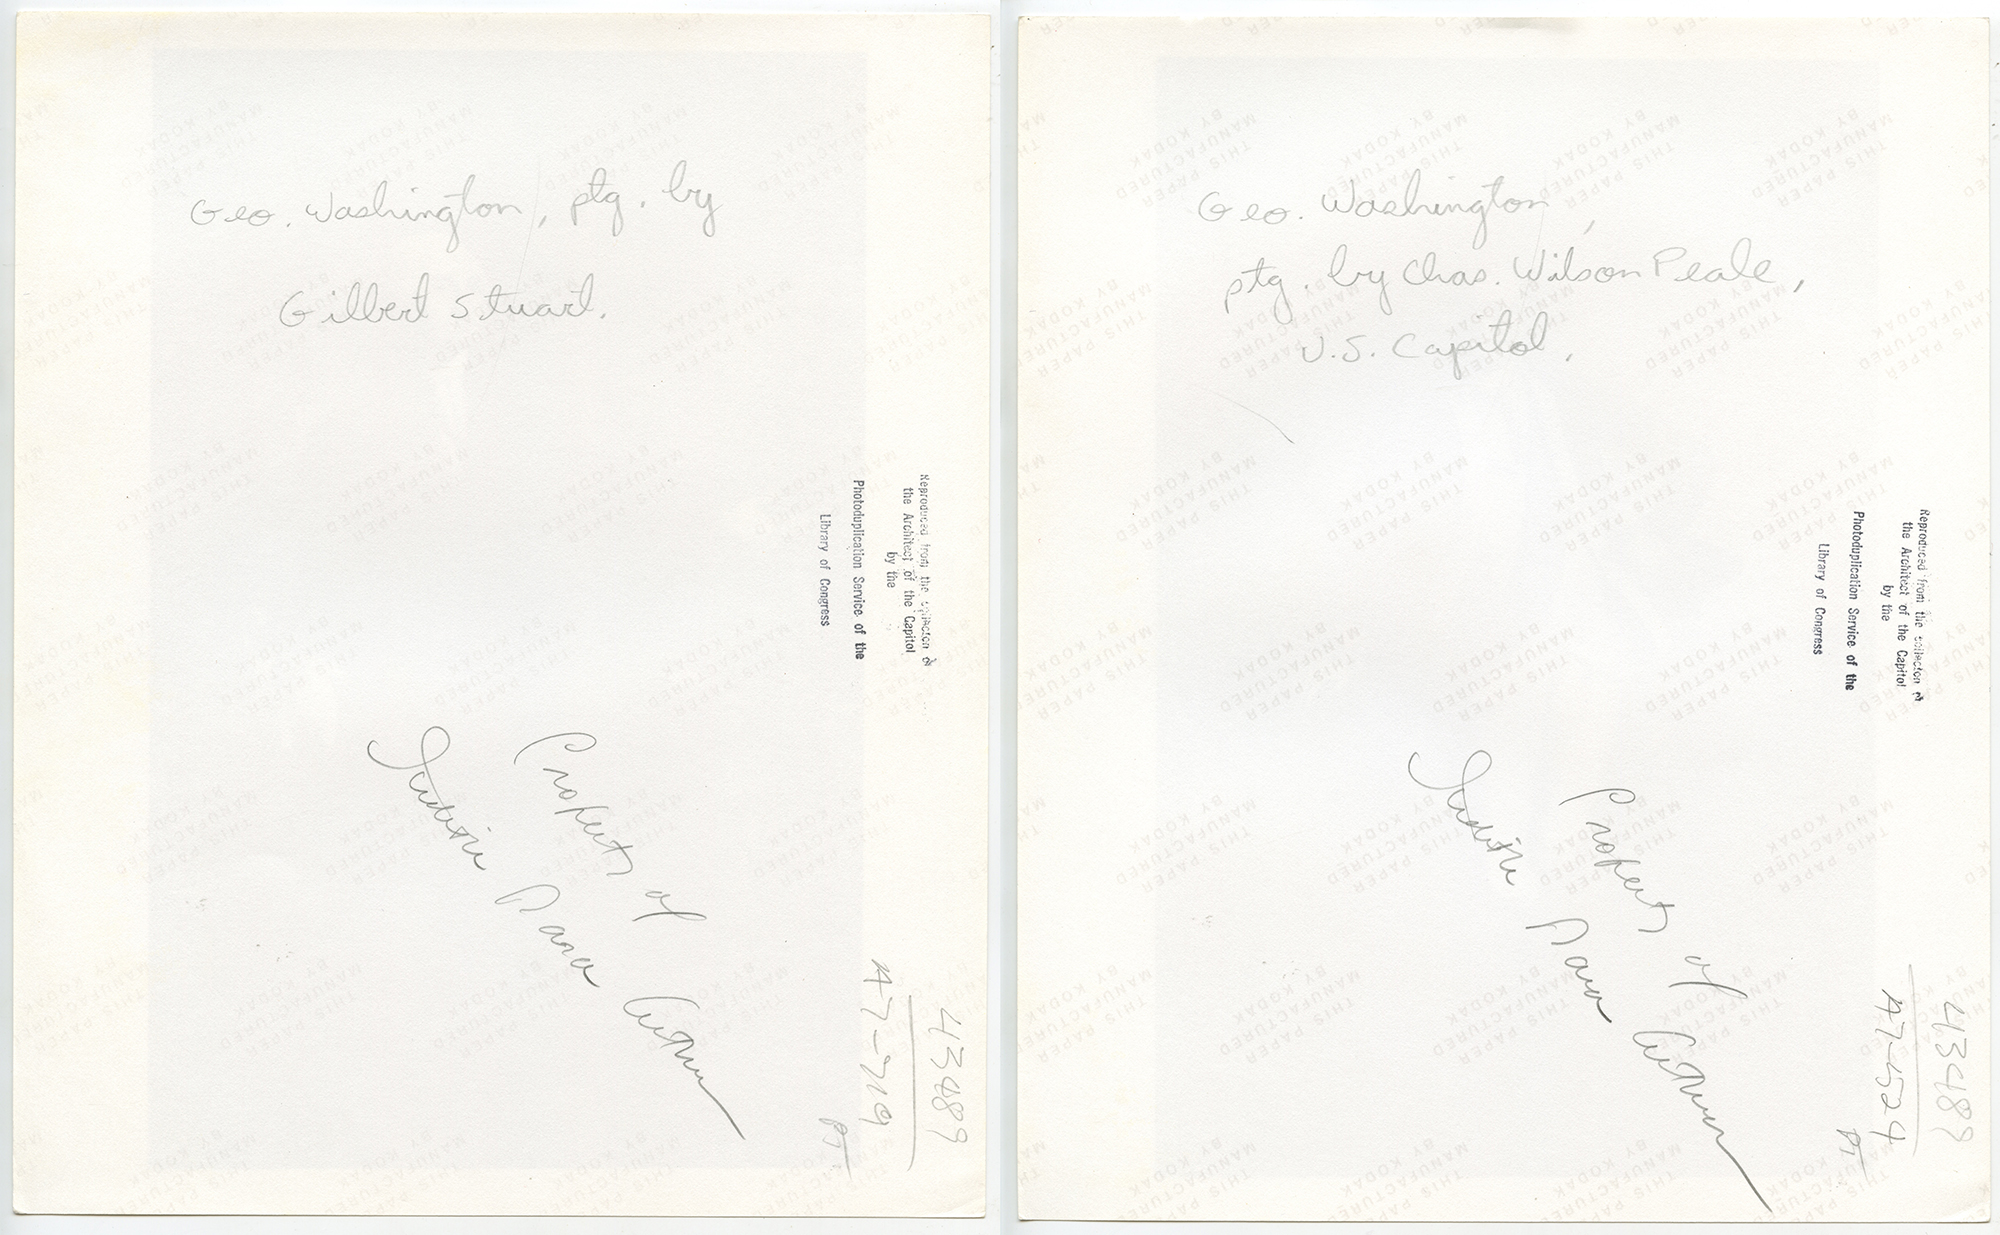 Geo. Washington, ptg. by
Gilbert Stuart.
Reproduced from the collection of
the Architect of the Capitol
by the
Photoduplication Service of the
Library of Congress
Property of
Judith Dana
43489
A7-719
Geo. Washington,
ptg. by Chas. Wilson Peale,
U.S. Capitol.
Reproduced from the collection of
the Architect of the Capitol
by the
Photoduplication Service of the
Library of Congress
Property of
Judith Dana
43489
A7-524
THIS PAPER
MANUFACTURED
BY KODAK